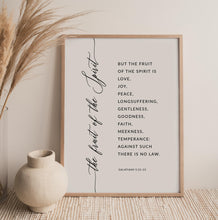 the fruit of the Spirit
BUT THE FRUIT
OF THE SPIRIT IS
LOVE,
JOY,
PEACE,
LONGSUFFERING,
GENTLENESS,
GOODNESS,
FAITH,
MEEKNESS,
TEMPERANCE:
AGAINST SUCH
THERE IS NO LAW.
GALATIANS 5:22-23